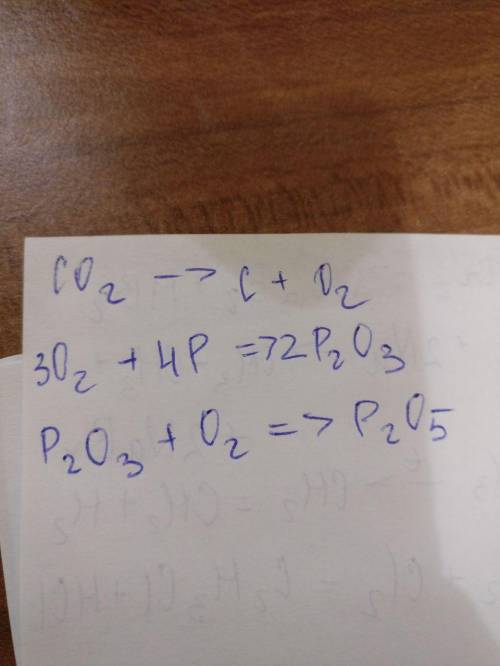 CO₂ —> C + O₂
3O₂ + 4P => 2P₂O₃
P₂O₃ + O₂ => P₂O₅